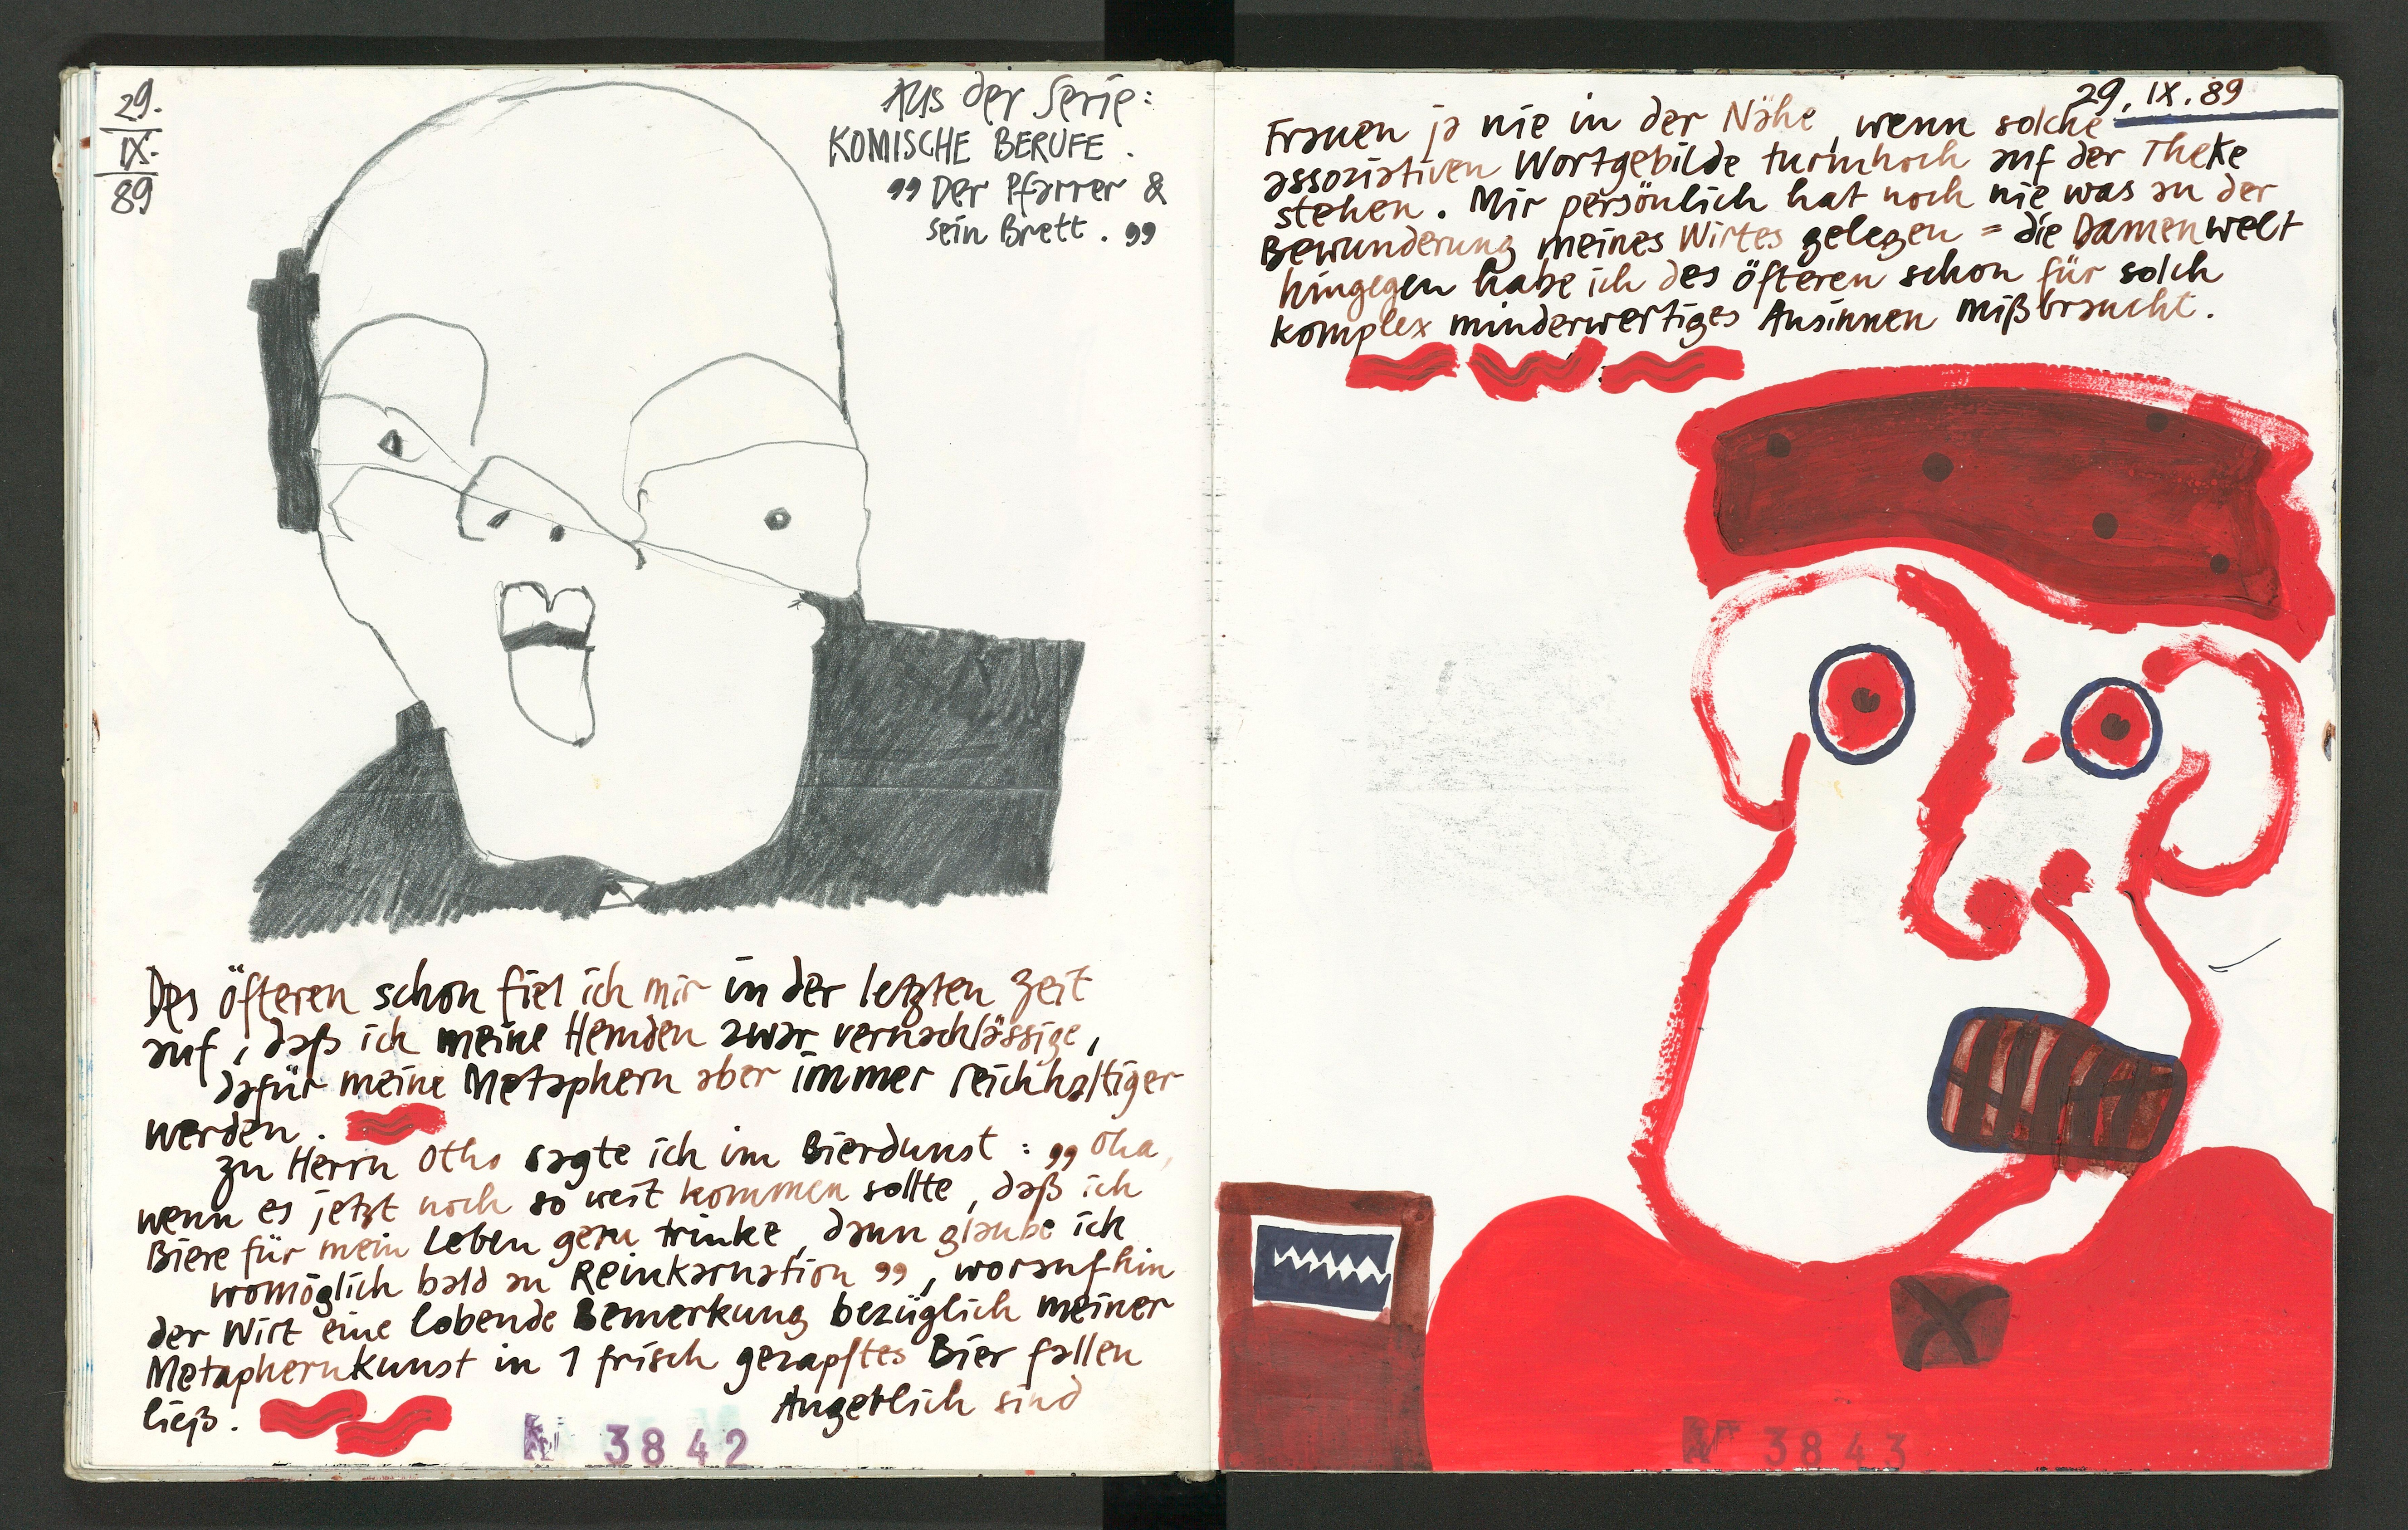 29.
IX.
89
Aus der Serie:
KOMISCHE BERUFE.
„Der Pfarrer &
sein Brett.„
Des öfteren schon fiel ich mir in der letzten Zeit
auf, daß ich meine Hemden zwar vernachlässige,
dafür meine Metaphern aber immer reichhaltiger
werden.
Zu Herrn Otho sagte ich im Bierdunst: „Oha,
wenn es jetzt noch so weit kommen sollte, daß ich
Biere für mein Leben gern trinke, dann glaube ich
womöglich bald an Reinkarnation„, woraufhin
der Wirt eine lobende Bemerkung bezüglich meiner
Metaphernkunst in 1 frisch gezapftes Bier fallen
ließ.
Angeblich sind
Nº 3842
29. IX. 89
Frauen ja nie in der Nähe, wenn solche
assoziativen Wortgebilde turmhoch auf der Theke
stehen. Mir persönlich hat noch nie was an der
Bewunderung meines Wirtes gelegen = die Damenwelt
hingegen habe ich des öfteren schon für solch
komplex minderwertiges Ansinnen mißbraucht.
Nº 3843